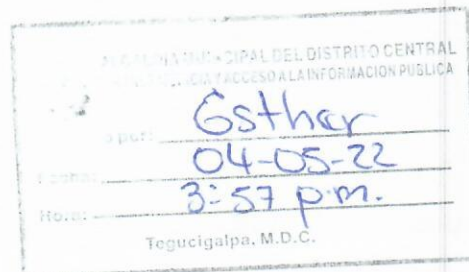 CIPAL DEL DISTRITO CENTRAL
Y ACCESO A LA INFORMACION PUBLICA
por: Esther
Fecha: 04-05-22
Hora: 3:57 p.m.
Tegucigalpa, M.D.C.